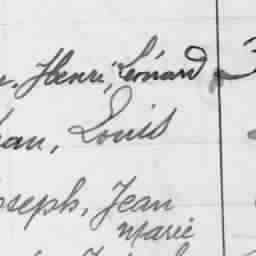 Henri, Léonard
Louis
Joseph, Jean
Marie